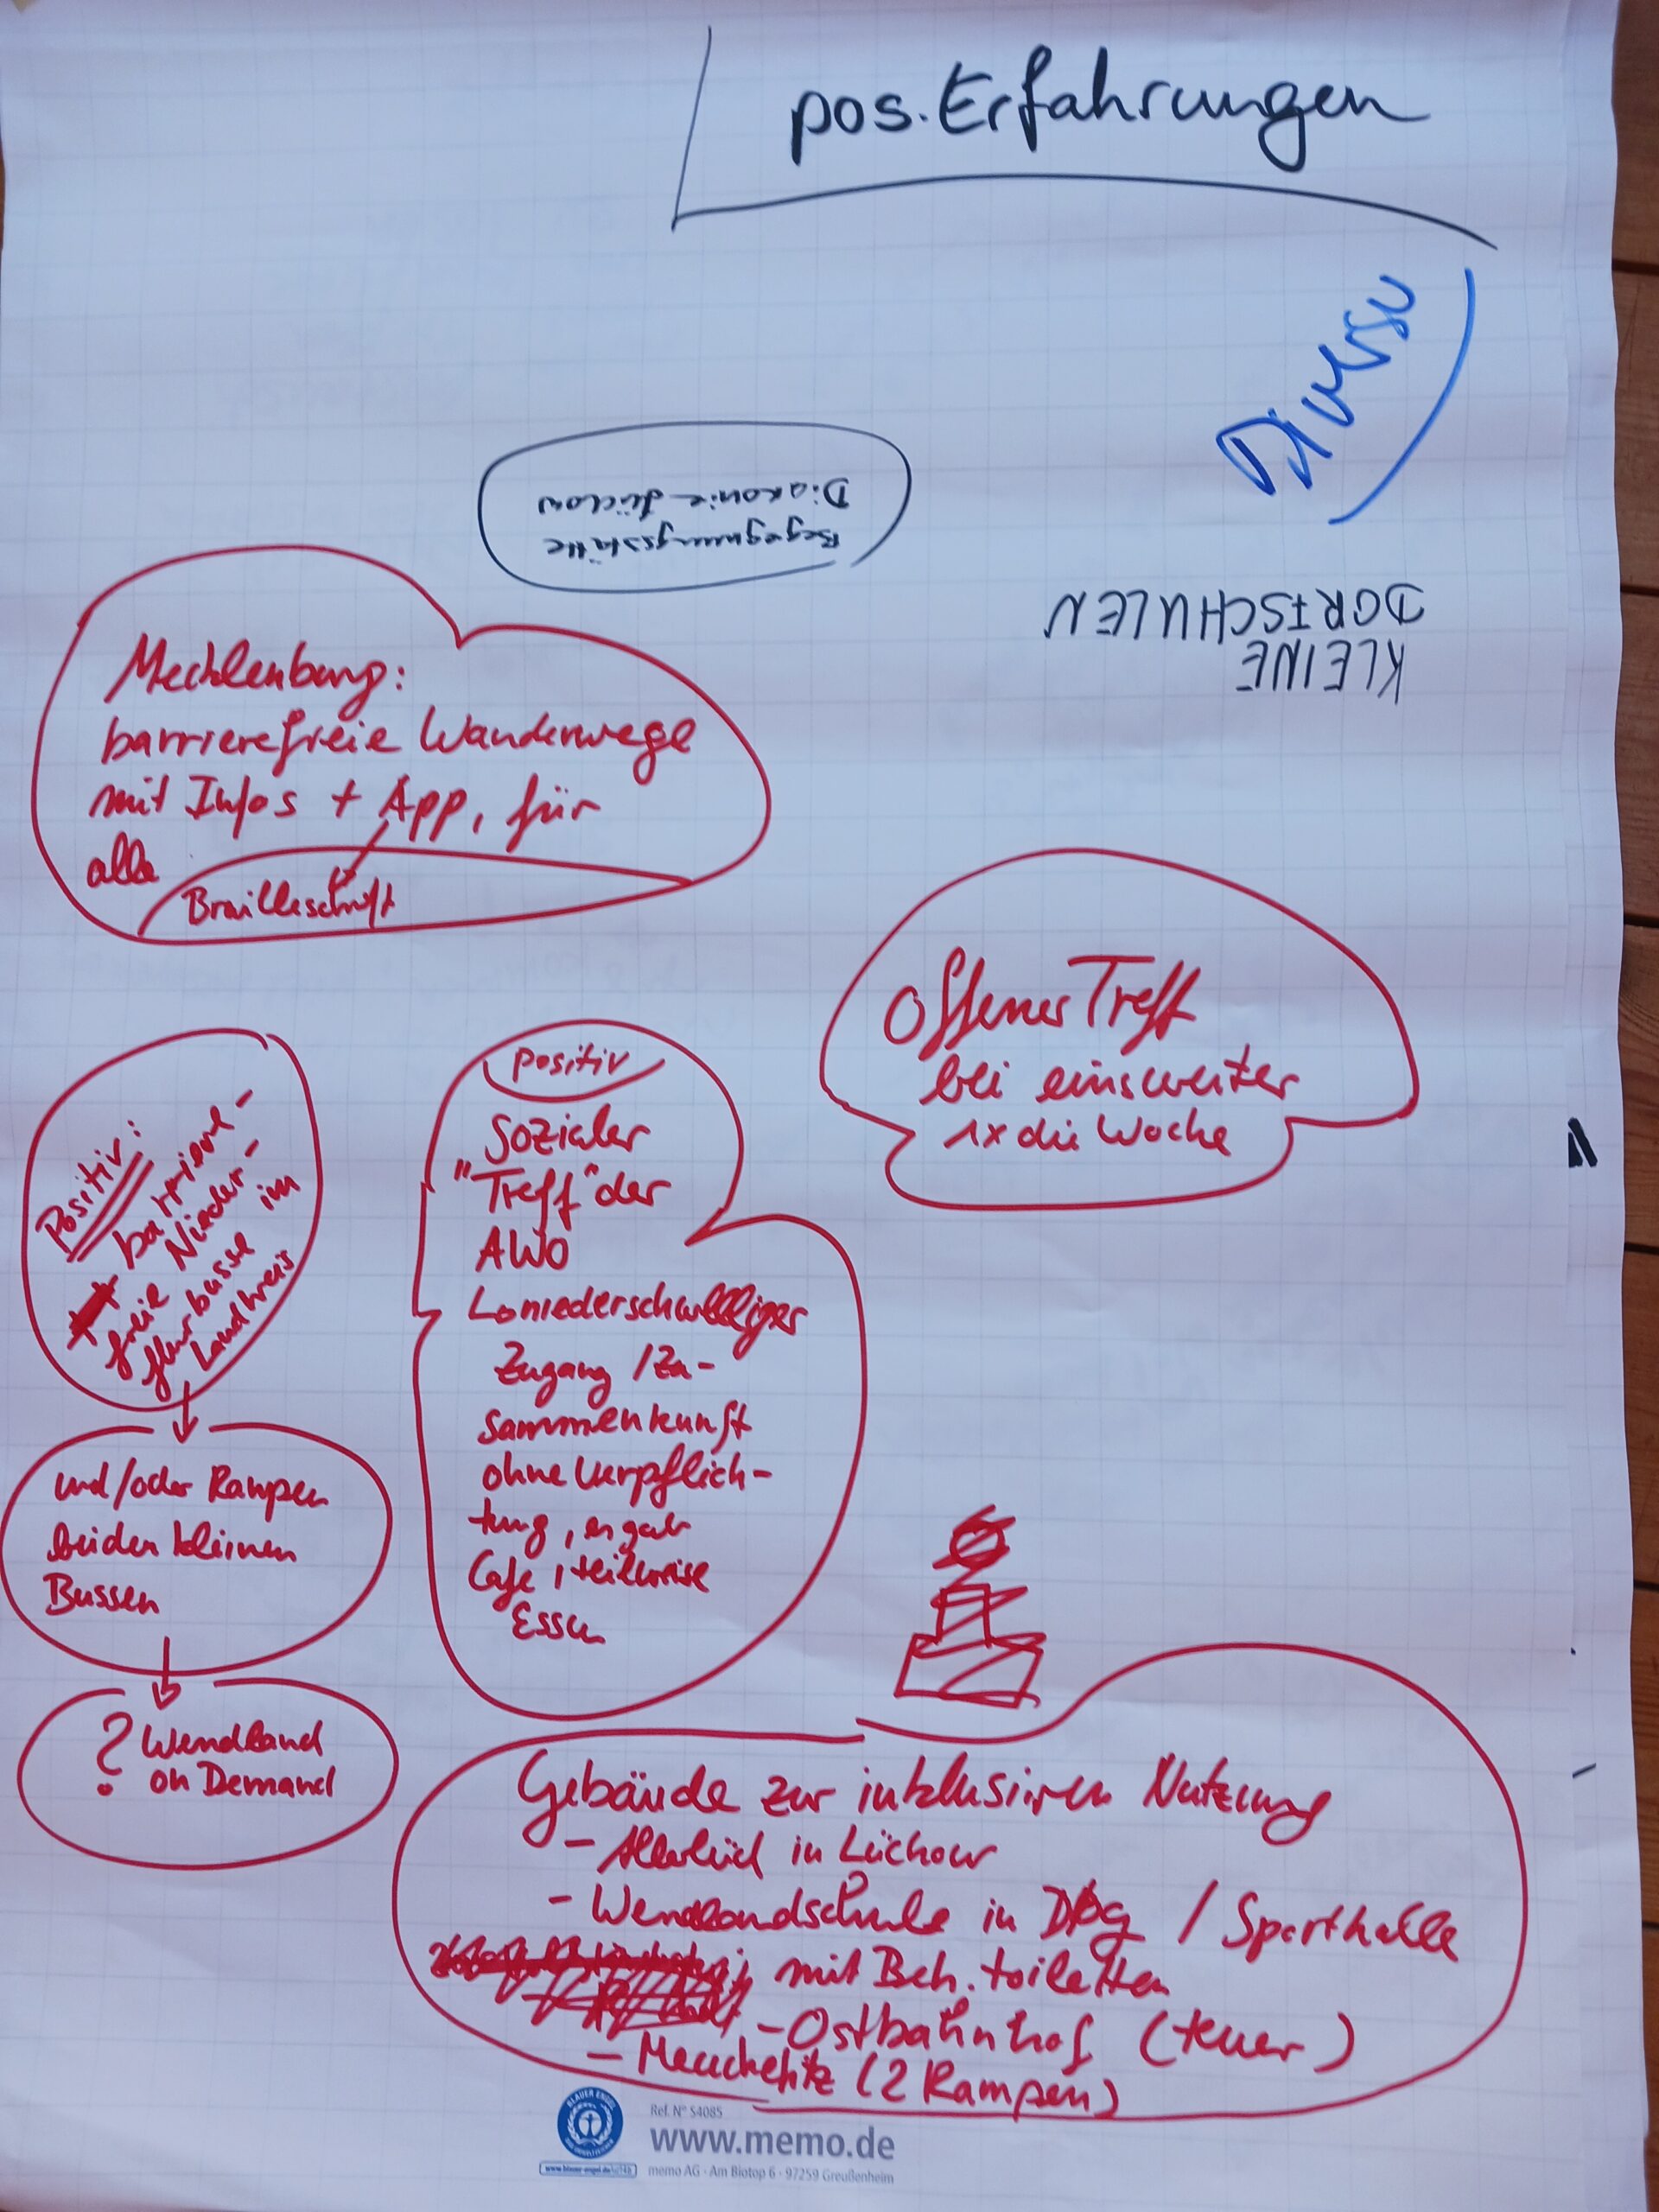 pos. Erfahrungen
Diverse
Begegnungsstätte
Diakonie Lüchow
KLEINE
DORFSCHULEN
Mecklenburg:
barrierefreie Wanderwege
mit Infos + App, für
alle
Brailleschrift
Offener Treff
bei einsweiter
1x die Woche
Positiv:
barriere-
freie Nieder-
flurbusse im
Landkreis
und/oder Rampen
bei den kleinen
Bussen
? Wendland
on Demand
positiv
Sozialer
"Treff" der
AWO
niederschwelliger
Zugang / Zu-
sammenkunft
ohne Verpflich-
tung, es gab
Cafe, teilweise
Essen
Gebäude zur inklusiven Nutzung
- Allerlüd in Lüchow
- Wendlandschule in Dbg / Sporthalle
mit Beh. toiletten
- Ostbahnhof (teuer)
- Meuchefitz (2 Rampen)
BLAUER ENGEL
Ref. N° S4085
www.memo.de
memo AG · Am Biotop 6 · 97259 Greußenheim